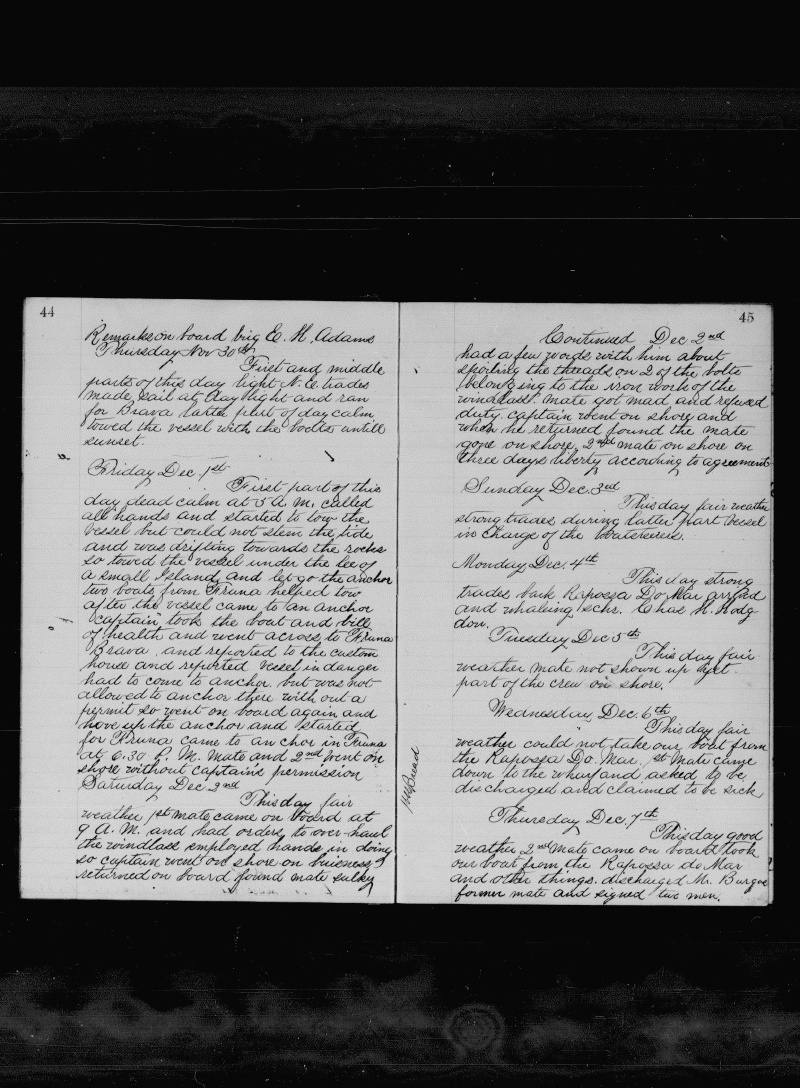 44
Remarks on board brig E. H. Adams
Thursday Nov 30th
First and middle
parts of this day light N. E. trades
made sail at daylight and ran
for Brava latter part of day calm
towed the vessel with the boats untill
sunset.
Friday Dec. 1st
First part of this
day dead calm at 5 A. M. called
all hands and started to tow the
vessel but could not stem the tide
and was drifting towards the rocks
so towed the vessel under the lee of
a small Island, and let go the anchor
two boats from Fruna helped tow
after the vessel came to an anchor
captain took the boat and bill
of health and went across to Fruna
Brava, and reported to the custom
house and reported vessel in danger
had to come to anchor. but was not
allowed to anchor there with out a
permit so went on board again and
hove up the anchor and started
for Fruna came to anchor in Fruna
at 6.30 P. M. Mate and 2nd went on
shore without captain's permission
Saturday Dec 2nd
This day fair
weather 1st mate came on board at
9 A. M. and had orders to over-haul
the windlass employed hands in doing
so captain went on shore on buisness
returned on board found mate sulky
45
Continued Dec 2nd
had a few words with him about
spoiling the threads on 2 of the bolts
belonging to the iron work of the
windlass. mate got mad and refused
duty. captain went on shore and
when he returned found the mate
gone on shore, 2nd mate on shore on
three days liberty according to agreement
Sunday Dec 3rd
This day fair weather
strong trades during latter part vessel
in charge of the boatsereis.
Monday Dec. 4th
This day strong
trades bark Rapossa Do Mar arrived
and whaling schr. Chas H. Hodg
don.
Tuesday Dec 5th
This day fair
weather mate not shown up yet.
part of the crew on shore.
Wednesday Dec. 6th
This day fair
weather could not take our boat from
the Rapossa Do. Mar. 1st Mate came
down to the wharf and asked to be
discharged and claimed to be sick
Thursday Dec. 7th
This day good
weather 2nd Mate came on board took
our boat from the Rapossa do Mar
and other things. discharged Mr. Burgoe
former mate and signed two men.